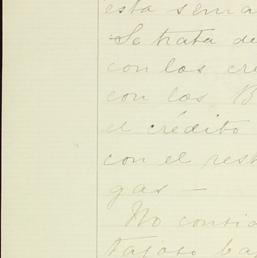 esta sema
Se trata de
con los cre
con los B
el crédito
con el rest
gas —
No consid
tajoso ba